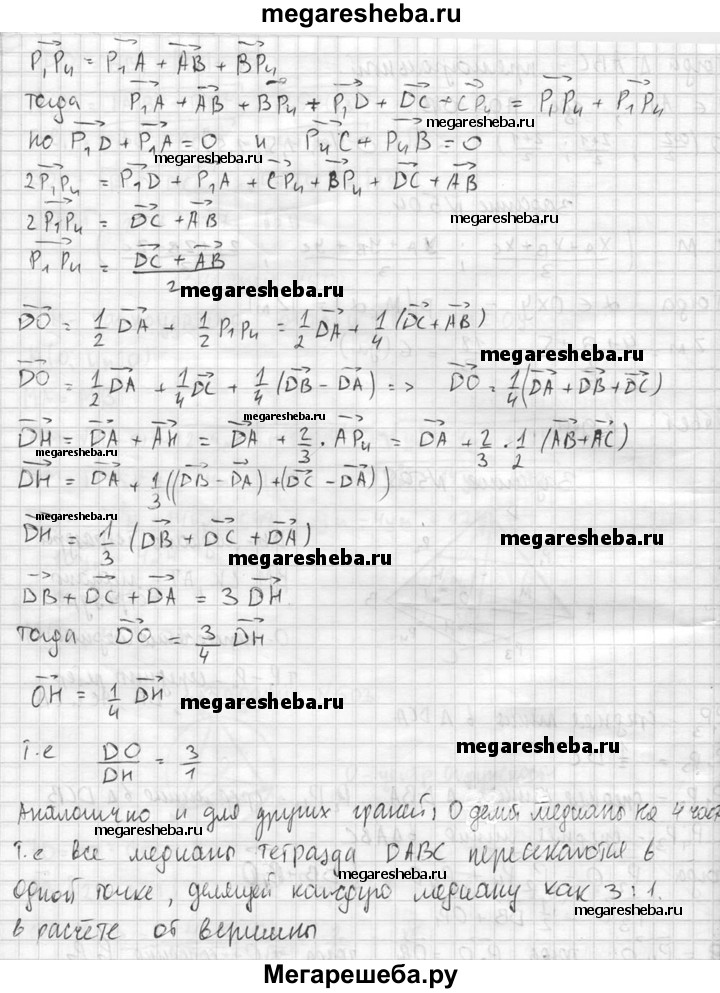 megaresheba.ru
P₁P₄ = P₁A + AB + BP₄
тогда P₁A + AB + BP₄ + P₁D + DC + CP₄ = P₁P₄ + P₁P₄
megaresheba.ru
но P₁D + P₁A = 0 и P₄C + P₄B = 0
megaresheba.ru
2P₁P₄ = P₁D + P₁A + CP₄ + BP₄ + DC + AB
2P₁P₄ = DC + AB
megaresheba.ru
P₁P₄ = (DC + AB)/2
megaresheba.ru
DO = 1/2 DA + 1/2 P₁P₄ = 1/2 DA + 1/4 (DC + AB)
megaresheba.ru
DO = 1/2 DA + 1/4 DC + 1/4 (DB - DA) => DO = 1/4 (DA + DB + DC)
megaresheba.ru
DH = DA + AH = DA + 2/3 · AP₄ = DA + 2/3 · 1/2 (AB + AC)
megaresheba.ru
DH = DA + 1/3 ((DB - DA) + (DC - DA))
megaresheba.ru
DH = 1/3 (DB + DC + DA)
megaresheba.ru
megaresheba.ru
DB + DC + DA = 3 DH
тогда DO = 3/4 DH
OH = 1/4 DH
megaresheba.ru
т.е DO/DH = 3/1
megaresheba.ru
Аналогично и для других граней; О делит медианы на 4 част
megaresheba.ru
т.е все медианы тетраэда DABC пересекаются в
megaresheba.ru
одной точке, делящей каждую медиану как 3:1.
megaresheba.ru
в расчёте от вершины
Мегарешеба.ру